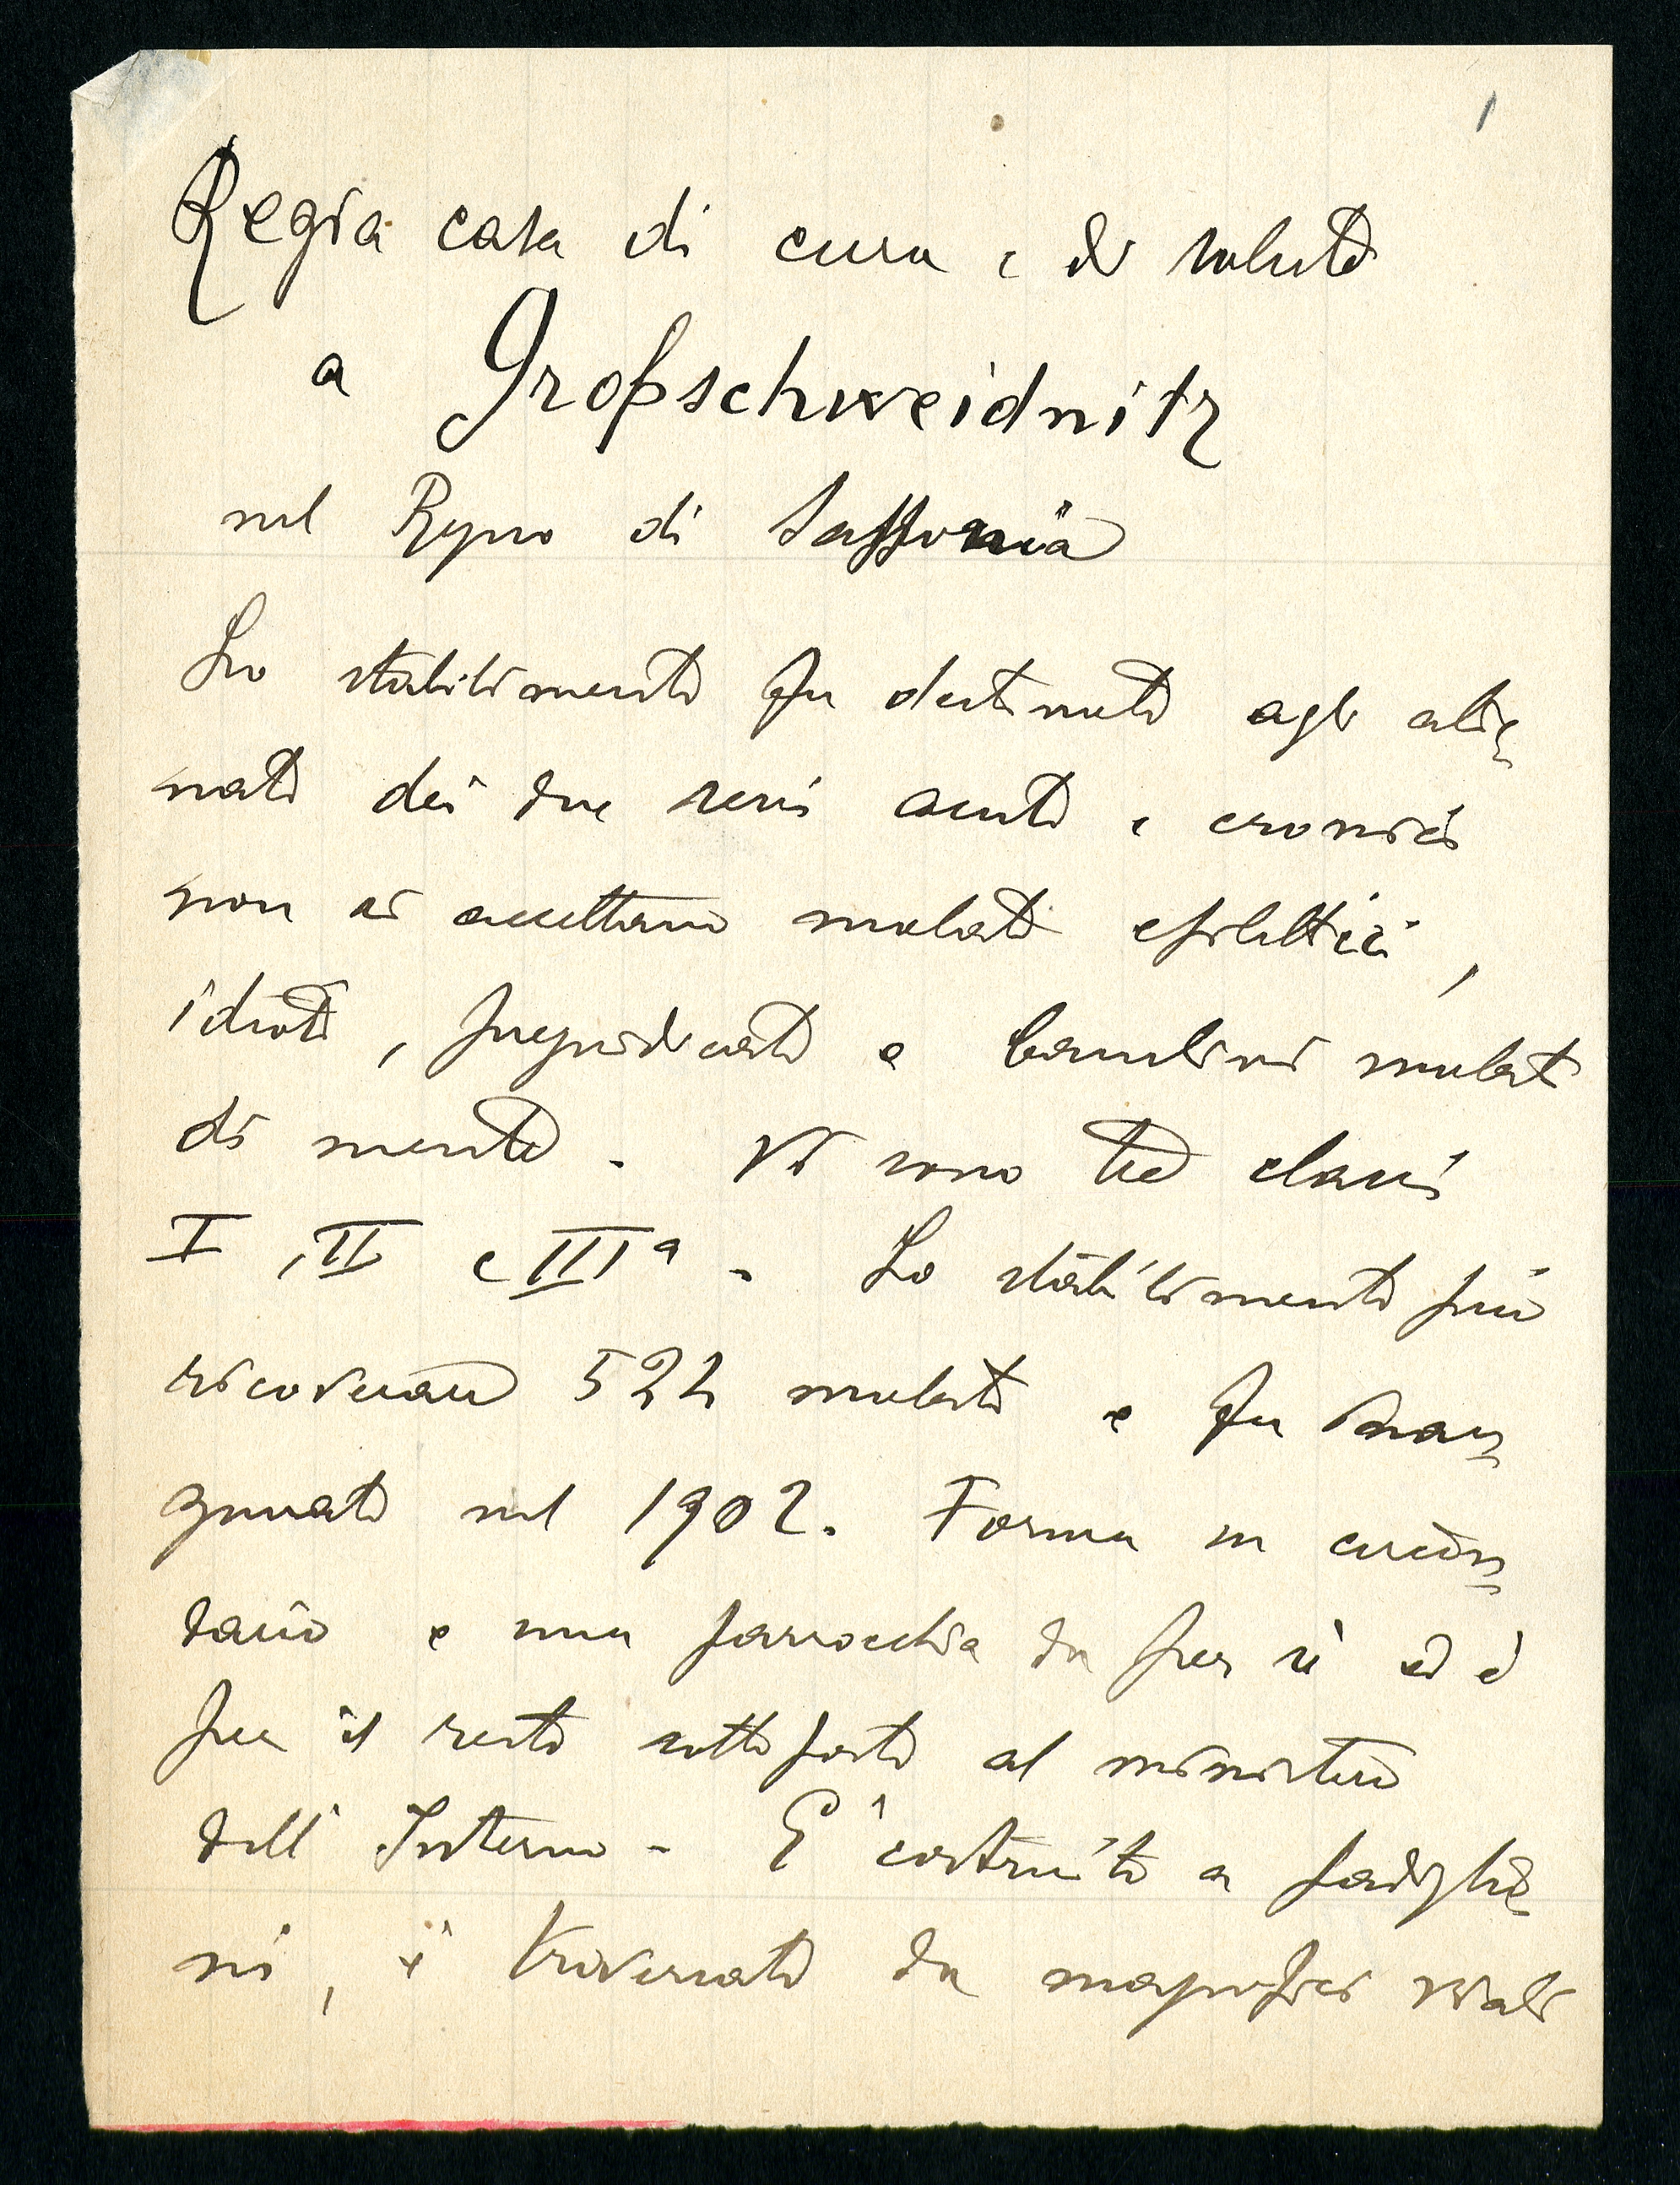 1
Regia casa di cura e di salute
a Großschweidnitz
nel Regno di Sassonia
Lo stabilimento fu destinato agli alie
nati dei due sessi acuti e cronici
non si accettano malati epilettici,
idioti, pregiudicati e bambini malati
di mente. Vi sono tre classi
I, II e IIIª. Lo stabilimento può
ricoverare 522 malati e fu inau
gurato nel 1902. Forma un circon
dario e una parrocchia da per sè ed è
per il resto sottoposto al ministero
dell'Interno. E' costruito a padiglio
ni, è traversato da magnifici viali